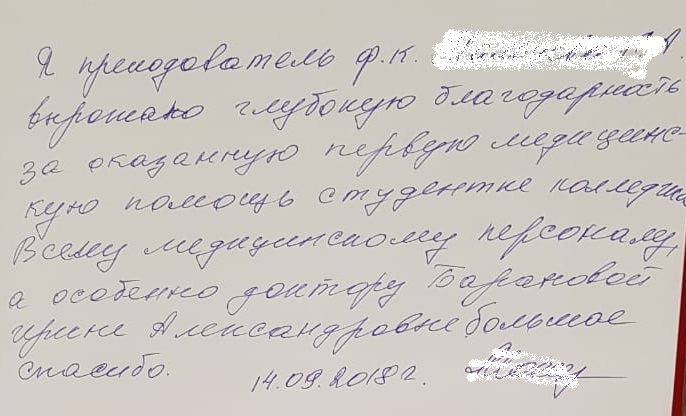 Я преподаватель ф.к.
выражаю глубокую благодарность
за оказанную первую медицинс-
кую помощь студентке колледжа
Всему медицинскому персоналу,
а особенно доктору Барановой
Ирине Александровне большое
спасибо. 14.09.2018г.